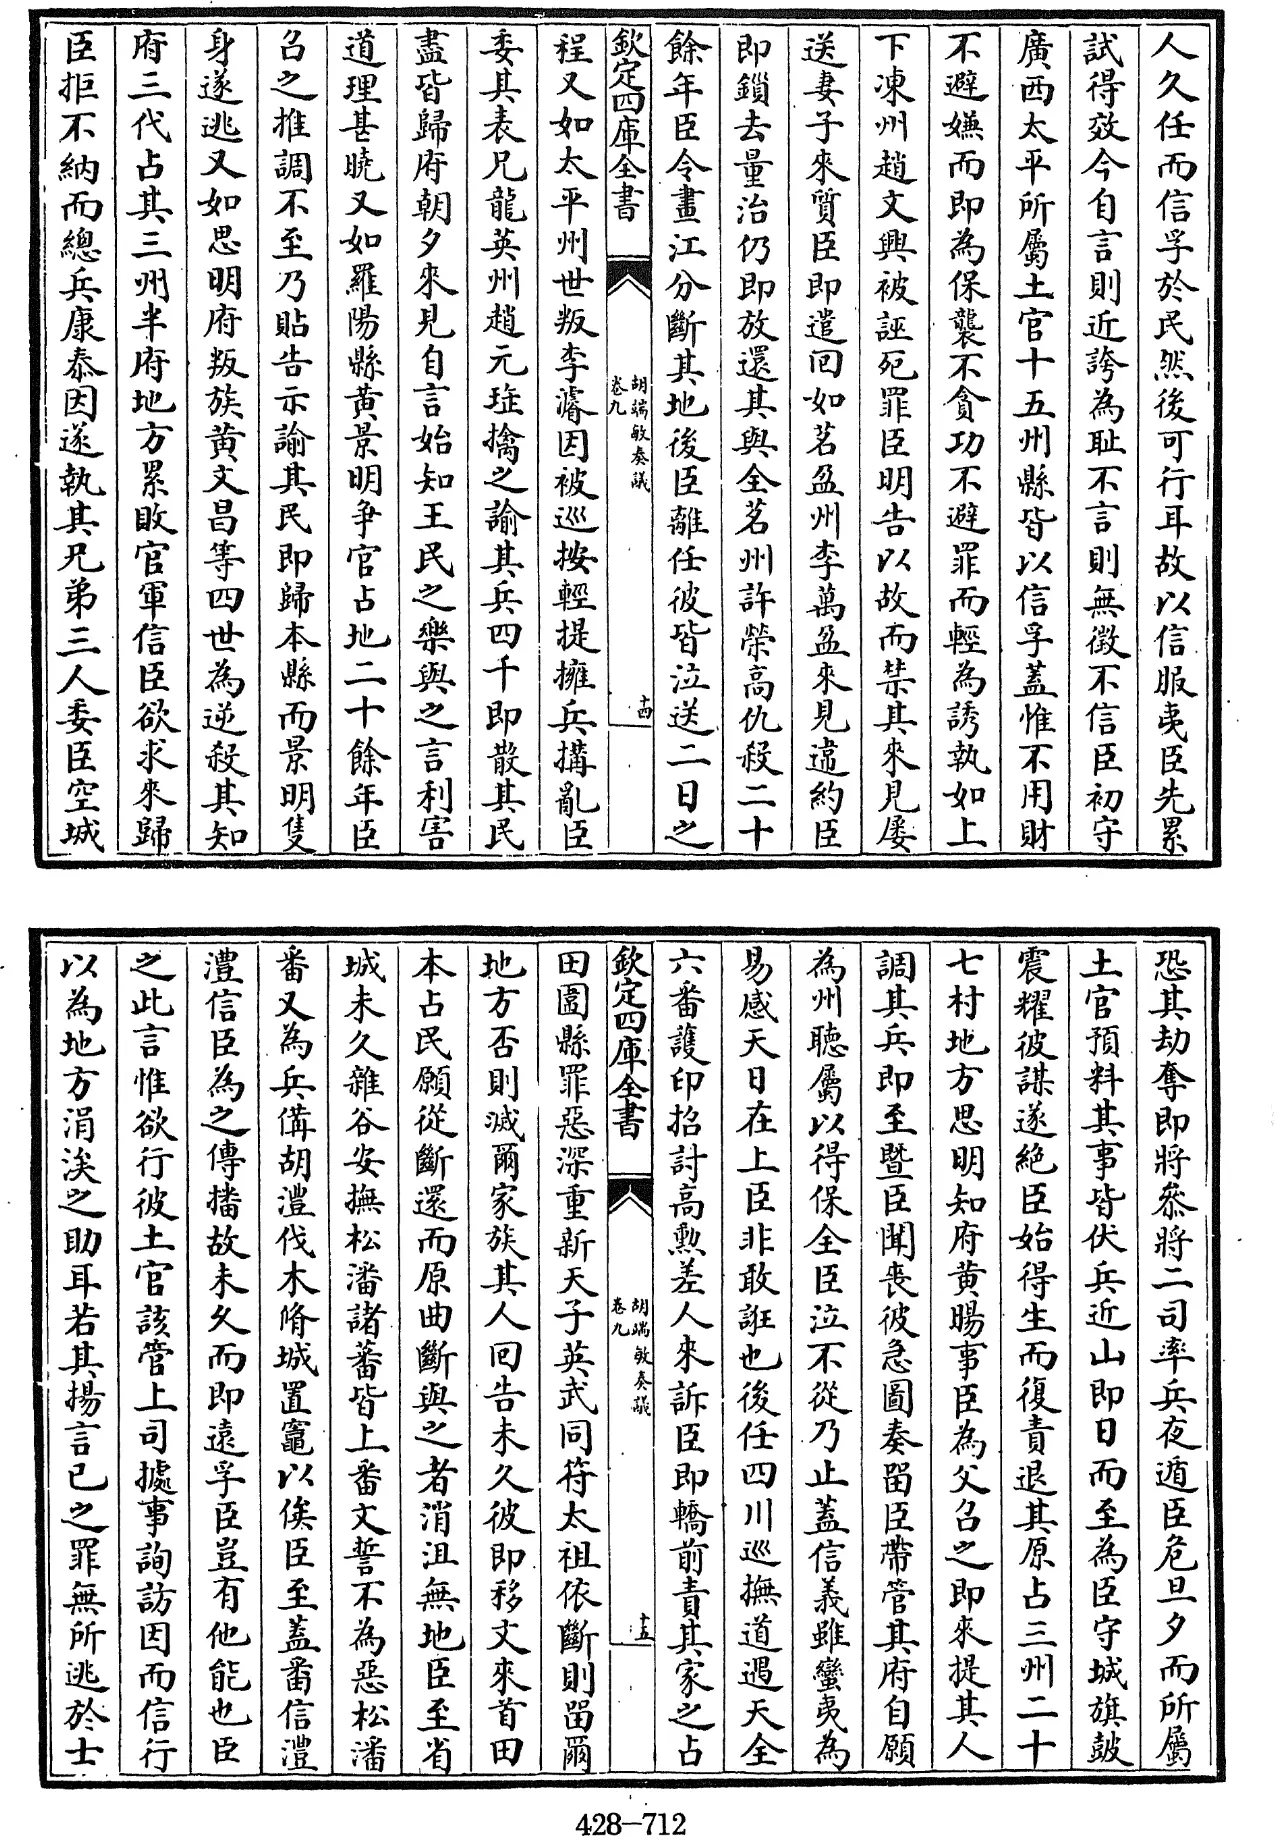 人久任而信孚於民然後可行耳故以信服夷臣先累
試得效今自言則近誇為耻不言則無徴不信臣初守
廣西太平所屬土官十五州縣皆以信孚蓋惟不用財
不避嫌而即為保襲不貪功不避罪而輕為誘執如上
下凍州趙文興被誣死罪臣明告以故而禁其來見屡
送妻子來質臣即遣回如茗盈州李萬盈來見違約臣
即鎖去量治仍即放還其與全茗州許榮高仇殺二十
餘年臣令畫江分斷其地後臣離任彼皆泣送二日之
欽定四庫全書
胡端敏奏議
卷九
十四
程又如太平州世叛李濬因被巡按輕提擁兵搆亂臣
委其表兄龍英州趙元珤擒之諭其兵四千即散其民
盡皆歸府朝夕來見自言始知王民之樂與之言利害
道理甚曉又如羅陽縣黄景明爭官占地二十餘年臣
召之推調不至乃貼告示諭其民即歸本縣而景明隻
身遂逃又如思明府叛族黄文昌等四世為逆殺其知
府三代占其三州半府地方累敗官軍信臣欲求來歸
臣拒不納而總兵康泰因遂執其兄弟三人委臣空城
恐其劫奪即將叅將二司率兵夜遁臣危旦夕而所屬
土官預料其事皆伏兵近山即日而至為臣守城旗皷
震耀彼謀遂絶臣始得生而復責退其原占三州二十
七村地方思明知府黄暘事臣為父召之即來提其人
調其兵即至暨臣聞喪彼急圖奏留臣帶管其府自願
為州聽屬以得保全臣泣不從乃止蓋信義雖蠻夷為
易感天日在上臣非敢誑也後任四川巡撫道遇天全
六番護印招討高勲差人來訴臣即轎前責其家之占
欽定四庫全書
胡端敏奏議
卷九
十五
田圄縣罪惡深重新天子英武同符太祖依斷則留爾
地方否則滅爾家族其人回告未久彼即移文來首田
本占民願從斷還而原曲斷與之者消沮無地臣至省
城未久雜谷安撫松潘諸蕃皆上番文誓不為惡松潘
番又為兵備胡澧伐木脩城置竈以俟臣至蓋番信澧
澧信臣為之傳播故未久而即遠孚臣豈有他能也臣
之此言惟欲行彼土官該管上司據事詢訪因而信行
以為地方涓涘之助耳若其揚言已之罪無所逃於士
428-712